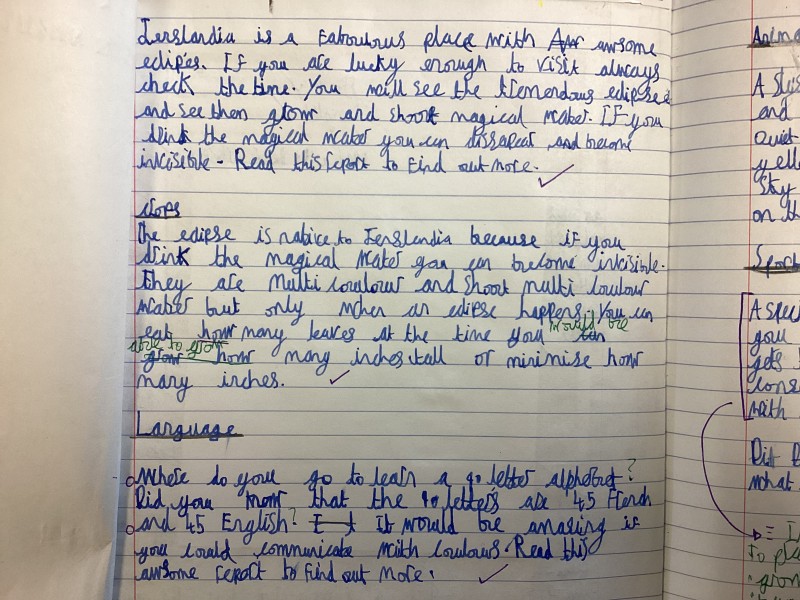 Ierslandia is a Faboulous place with awsome
eclipes. If you are lucky enough to visit always
check the time. You will see the tremendous eclipse
and see then glow and shoot magical water. If you
drink the magical water you can dissapear and become
invisible - Read this report to Find out more.
The eclipse is native to Ierslandia because if you
drink the magical water you can become invisible.
They are Multi coulour and shoot multi coulour
water but only when an eclipse happens. You can
eat how many leaves at the time you would be
able to grow
how many inches tall or minimise how
many inches.
Language
Where do you go to learn a 90 letter alphabet?
Did you know that the 90 letters are 45 French
and 45 English? It would be amazing if
you could communicate with coulours. Read this
awsome report to Find out more.
A
and
Quiet
yell
Stay
on th
A spec
you
gets
cons
with
Did
what